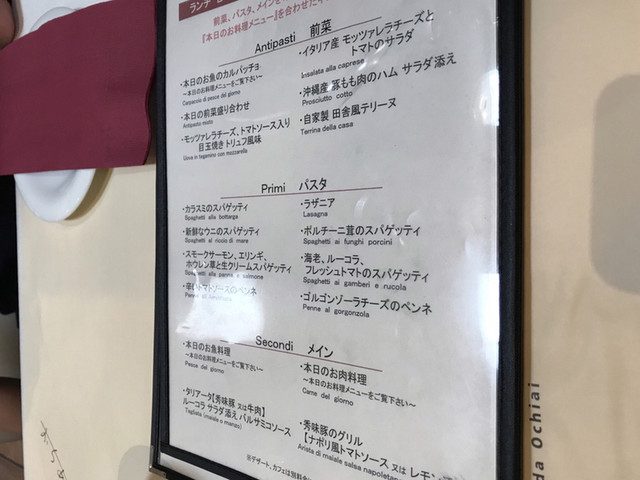 ランチ
前菜、パスタ、メインを
『本日のお料理メニュー』を合わせた
Antipasti 前菜
・本日のお魚のカルパッチョ
～本日のお料理メニューをご覧下さい～
Carpaccio di pesce del giorno
・本日の前菜盛り合わせ
Antipasto misto
・モッツァレラチーズ、トマトソース入り
目玉焼き トリュフ風味
Uova in tegamino con mozzarella
・イタリア産 モッツァレラチーズと
トマトのサラダ
Insalata alla caprese
・沖縄産 豚もも肉のハム サラダ添え
Prosciutto cotto
・自家製 田舎風テリーヌ
Terrina della casa
Primi パスタ
・カラスミのスパゲッティ
Spaghetti alla bottarga
・新鮮なウニのスパゲッティ
Spaghetti al riccio di mare
・スモークサーモン、エリンギ、
ホウレン草と生クリームスパゲッティ
Spaghetti alla panna e salmone
・辛いトマトソースのペンネ
Penne all'
・ラザニア
Lasagna
・ポルチーニ茸のスパゲッティ
Spaghetti ai funghi porcini
・海老、ルーコラ、
フレッシュトマトのスパゲッティ
Spaghetti ai gamberi e rucola
・ゴルゴンゾーラチーズのペンネ
Penne al gorgonzola
Secondi メイン
・本日のお魚料理
～本日のお料理メニューをご覧下さい～
Pesce del giorno
・タリアータ【秀味豚 又は 牛肉】
ルーコラ サラダ添え バルサミコソース
Tagliata (maiale o manzo)
・本日のお肉料理
～本日のお料理メニューをご覧下さい～
Carne del giorno
・秀味豚のグリル
【ナポリ風トマトソース 又は レモン
Arista di maiale salsa napoletana
※デザート、カフェは別料金
da Ochiai